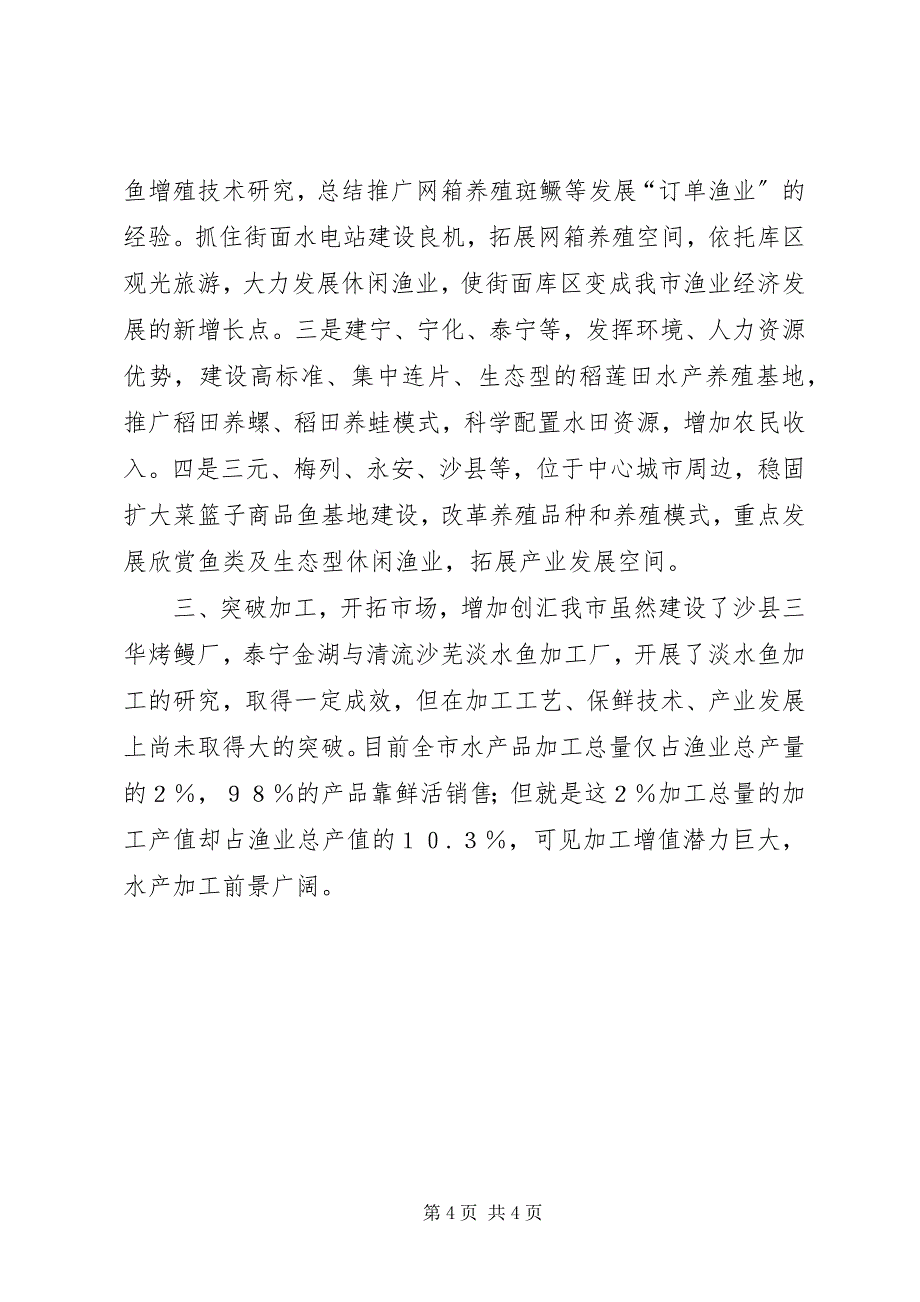 鱼增殖技术研究，总结推广网箱养殖斑鳜等发展“订单渔业〞的
经验。抓住街面水电站建设良机，拓展网箱养殖空间，依托库区
观光旅游，大力发展休闲渔业，使街面库区变成我市渔业经济发
展的新增长点。三是建宁、宁化、泰宁等，发挥环境、人力资源
优势，建设高标准、集中连片、生态型的稻莲田水产养殖基地，
推广稻田养螺、稻田养蛙模式，科学配置水田资源，增加农民收
入。四是三元、梅列、永安、沙县等，位于中心城市周边，稳固
扩大菜篮子商品鱼基地建设，改革养殖品种和养殖模式，重点发
展欣赏鱼类及生态型休闲渔业，拓展产业发展空间。
三、突破加工，开拓市场，增加创汇我市虽然建设了沙县三
华烤鳗厂，泰宁金湖与清流沙芜淡水鱼加工厂，开展了淡水鱼加
工的研究，取得一定成效，但在加工工艺、保鲜技术、产业发展
上尚未取得大的突破。目前全市水产品加工总量仅占渔业总产量
的２％，９８％的产品靠鲜活销售；但就是这２％加工总量的加
工产值却占渔业总产值的１０．３％，可见加工增值潜力巨大，
水产加工前景广阔。
第 4 页 共 4 页